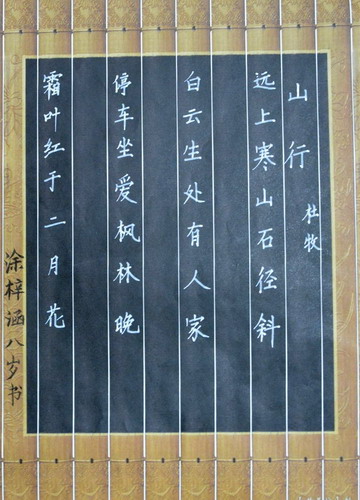 山行
杜牧
远上寒山石径斜
白云生处有人家
停车坐爱枫林晚
霜叶红于二月花
涂梓涵八岁书